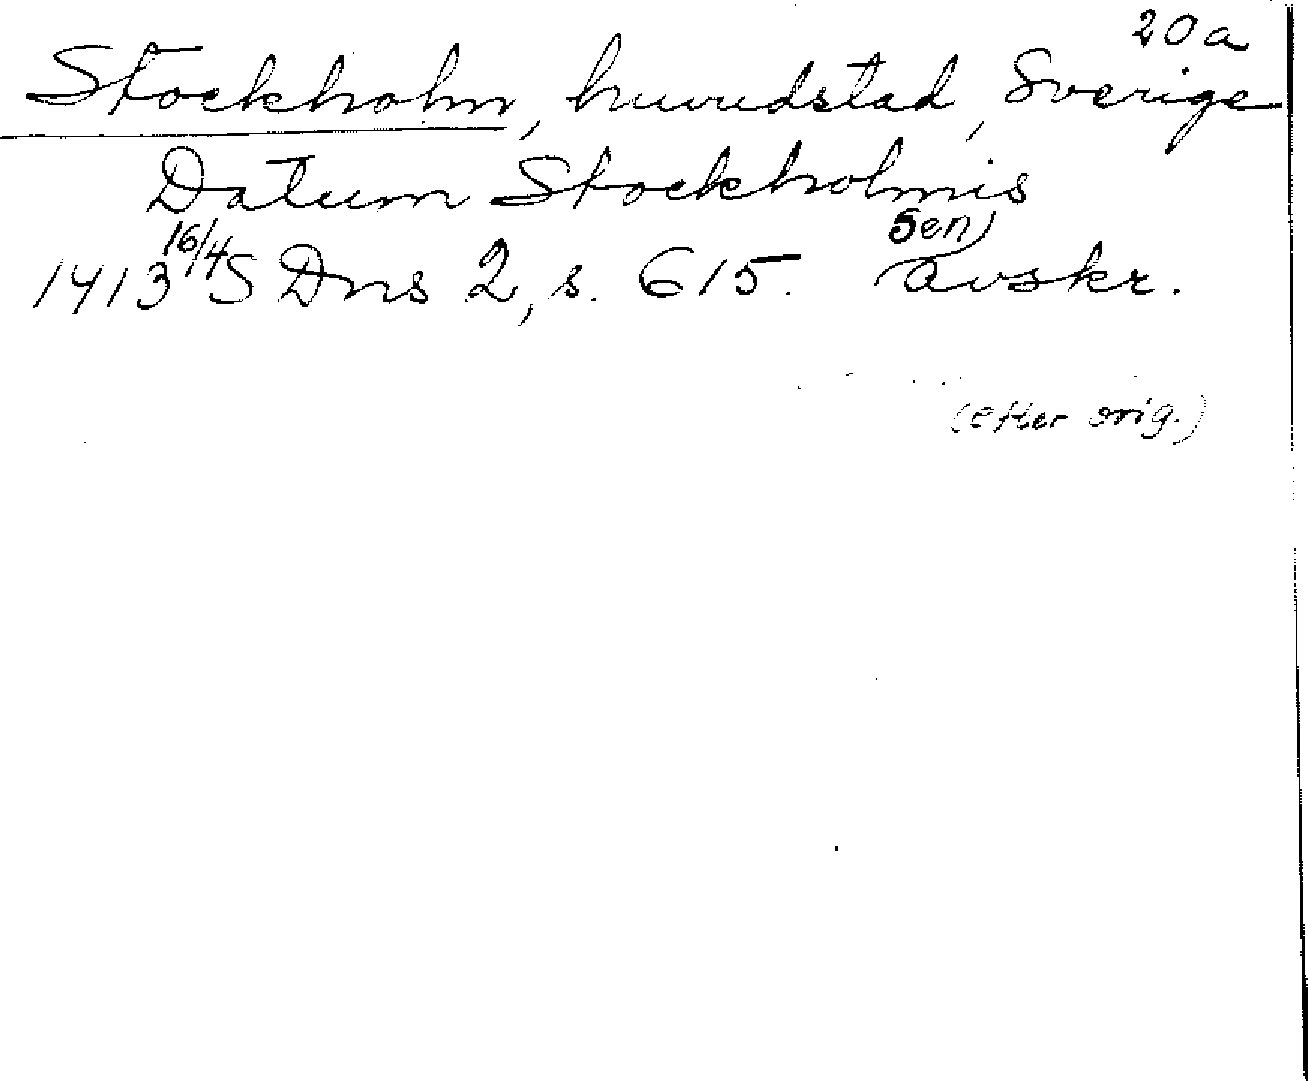 20a
Stockholm, huvudstad, Sverige
Datum Stockholmis
1413 16/4 S Dns 2, s. 615. Sen) avskr.
(efter orig.)